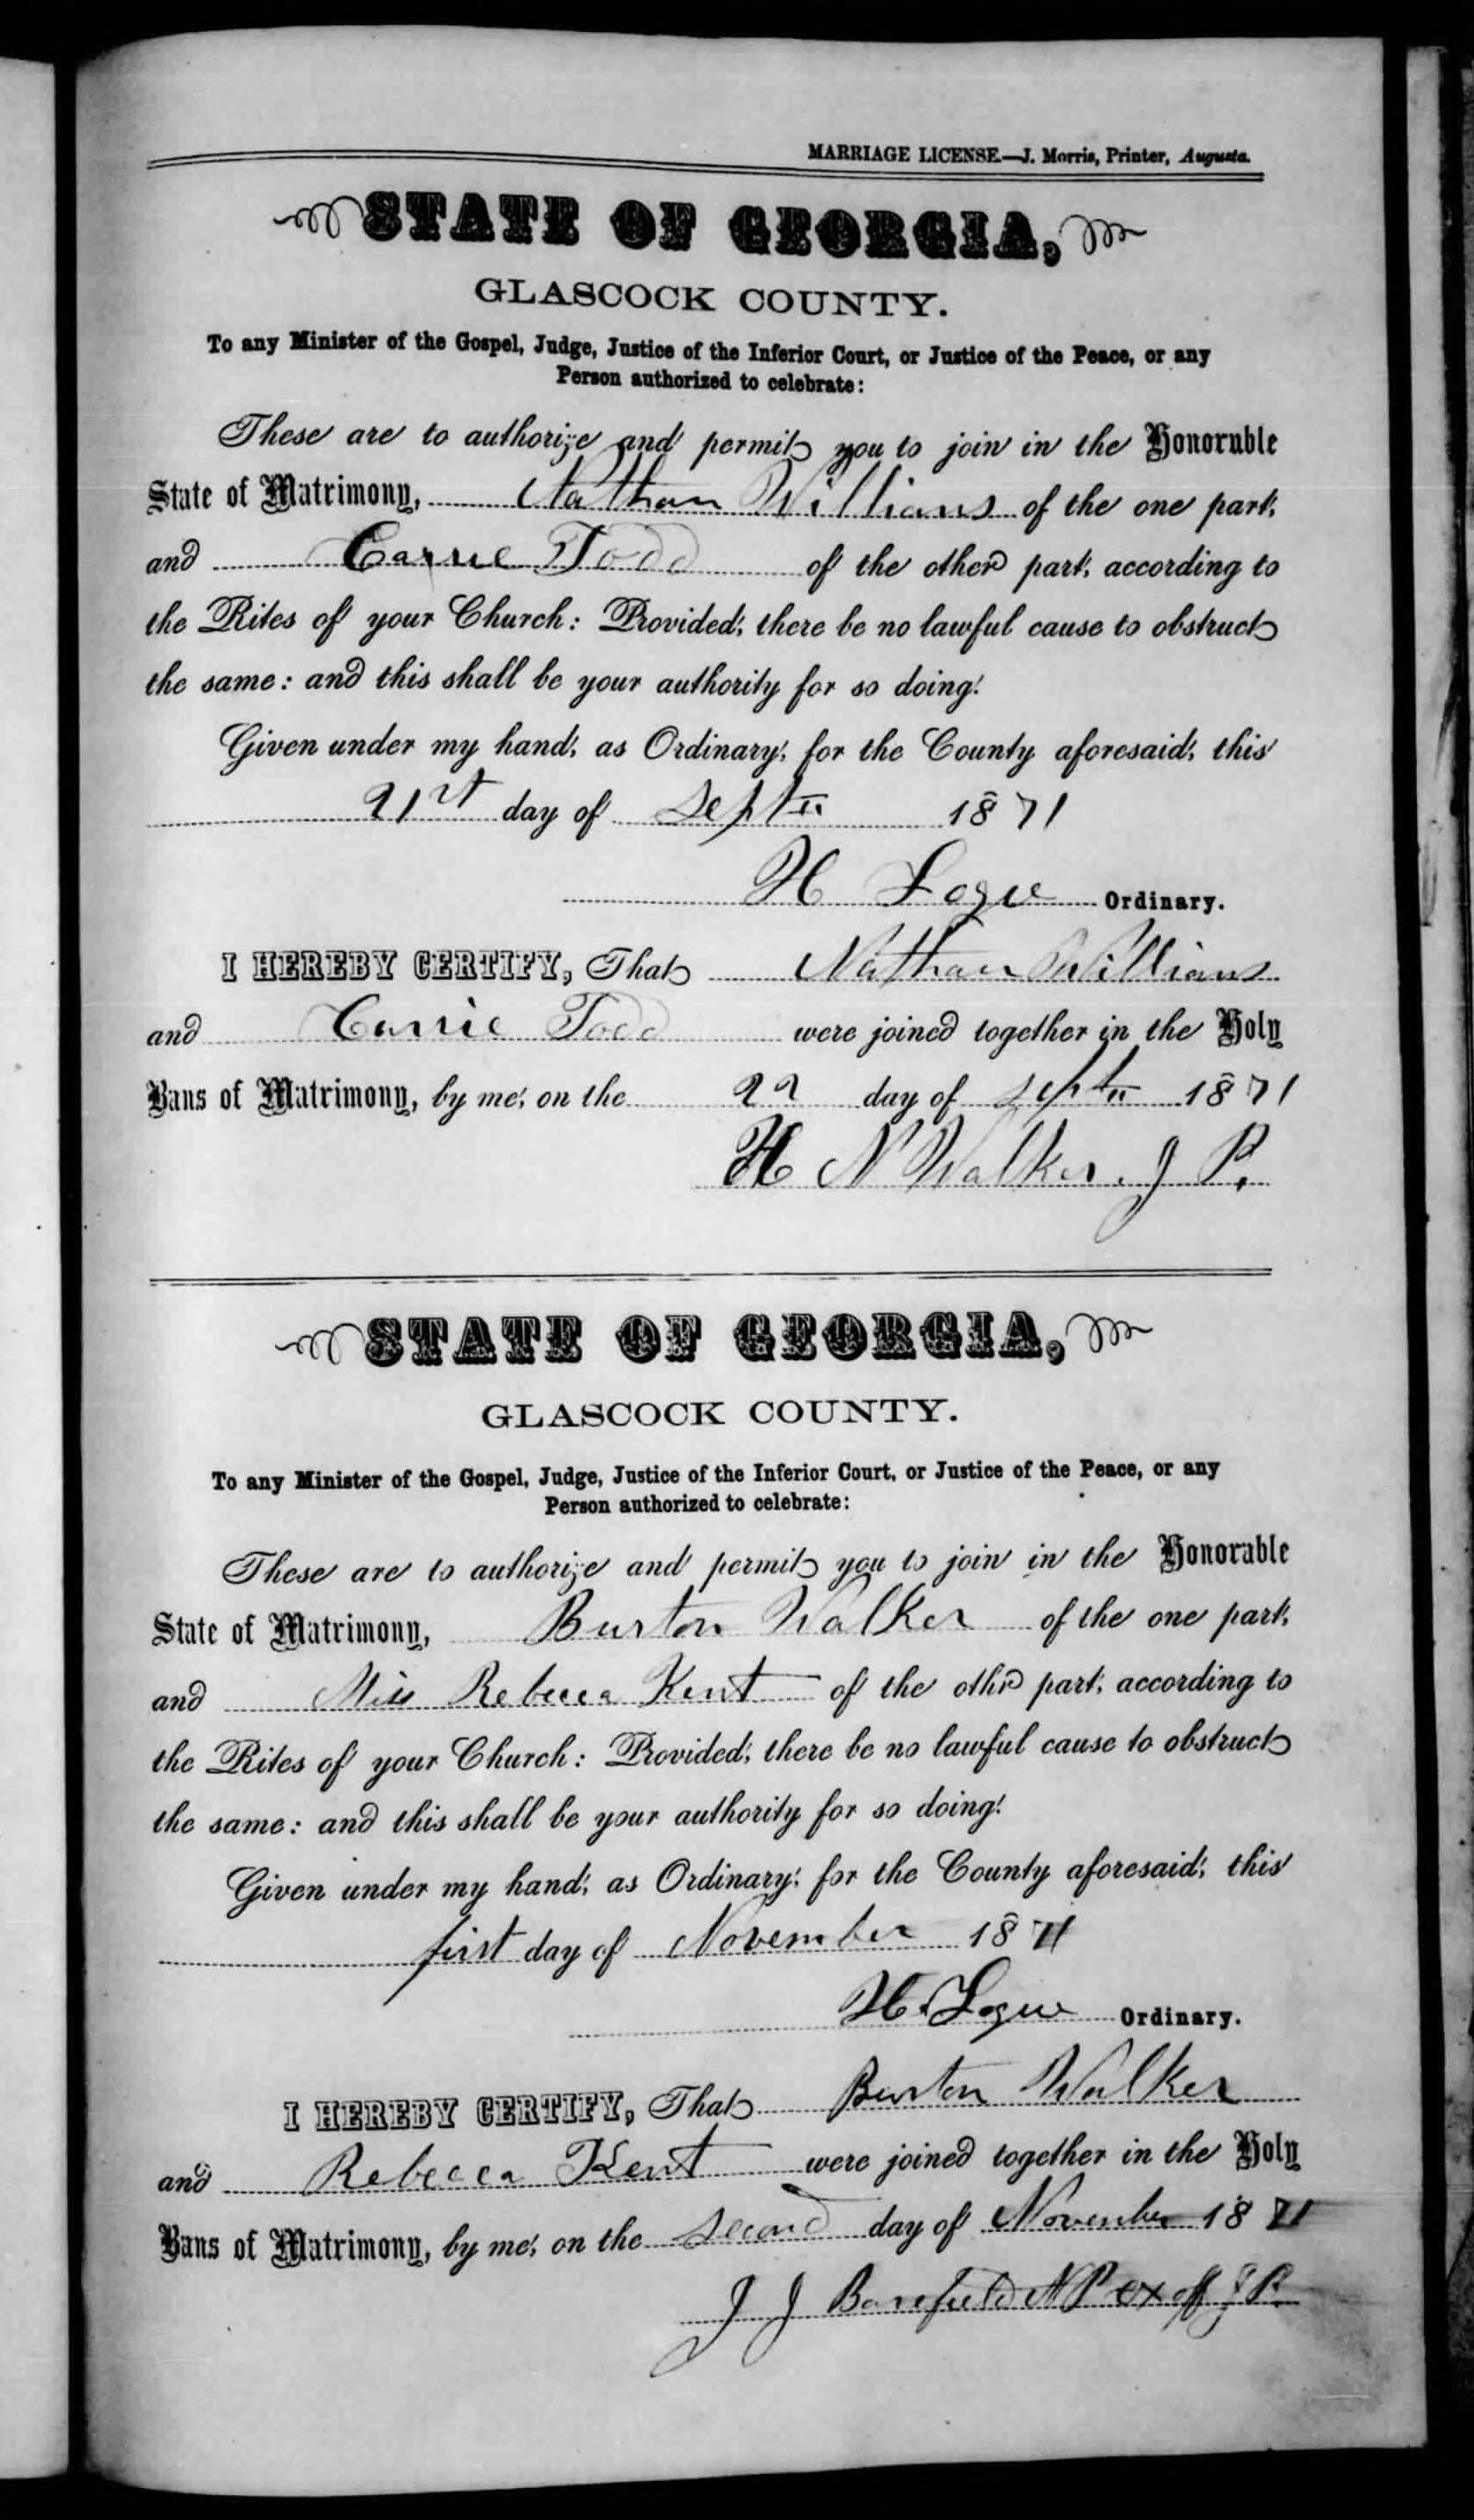 MARRIAGE LICENSE.—J. Morris, Printer, Augusta.
STATE OF GEORGIA,
GLASCOCK COUNTY.
To any Minister of the Gospel, Judge, Justice of the Inferior Court, or Justice of the Peace, or any
Person authorized to celebrate:
These are to authorize and permit you to join in the Honorable
State of Matrimony, Nathan Willians of the one part,
and Carrie Todd of the other part, according to
the Rites of your Church: Provided, there be no lawful cause to obstruct
the same: and this shall be your authority for so doing.
Given under my hand, as Ordinary, for the County aforesaid, this
21st day of Sept 1871
H Logue Ordinary.
I HEREBY CERTIFY, That Nathan Willians
and Carrie Todd were joined together in the Holy
Bans of Matrimony, by me, on the 22 day of Sept 1871
H N Walker. J P.
STATE OF GEORGIA,
GLASCOCK COUNTY.
To any Minister of the Gospel, Judge, Justice of the Inferior Court, or Justice of the Peace, or any
Person authorized to celebrate:
These are to authorize and permit you to join in the Honorable
State of Matrimony, Burton Walker of the one part,
and Miss Rebecca Kent of the othr part, according to
the Rites of your Church: Provided, there be no lawful cause to obstruct
the same: and this shall be your authority for so doing.
Given under my hand, as Ordinary, for the County aforesaid, this
first day of November 1871
H. Logue Ordinary.
I HEREBY CERTIFY, That Burton Walker
and Rebecca Kent were joined together in the Holy
Bans of Matrimony, by me, on the second day of November 1871
J J Barefield N P ex off J P.